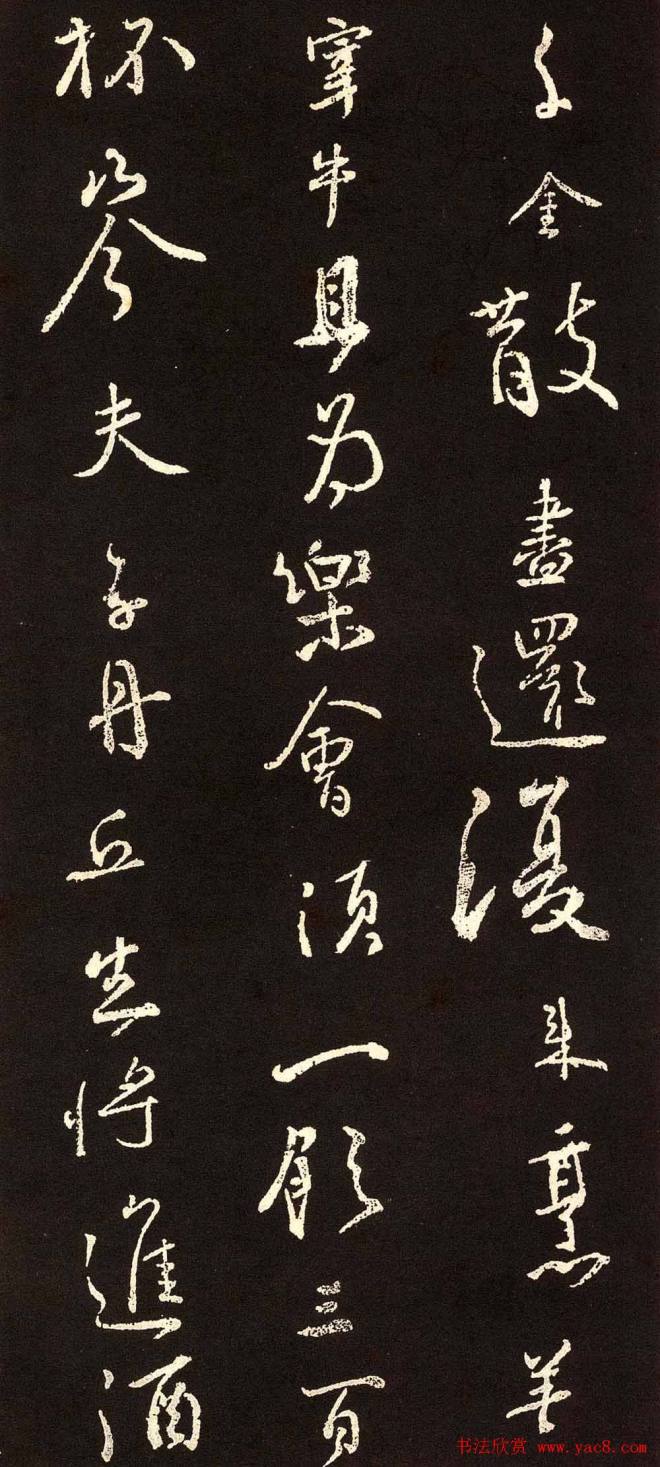 千金散盡還復来烹羊
宰牛且為樂會須一飲三百
杯岑夫子丹丘生将進酒
书法欣赏 www.yac8.com